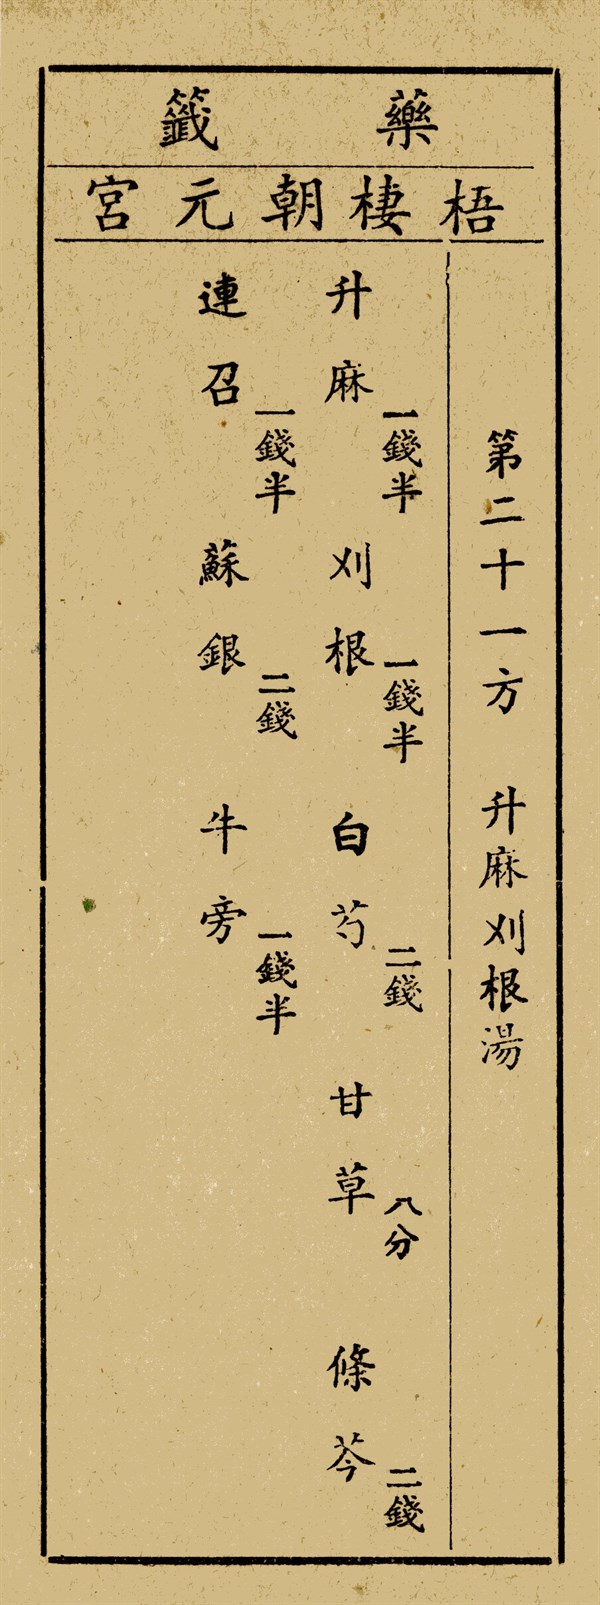 藥籤
梧棲朝元宮
第二十一方 升麻刈根湯
升麻 一錢半 刈根 一錢半 白芍 二錢 甘草 八分 條芩 二錢
連召 一錢半 蘇銀 二錢 牛旁 一錢半